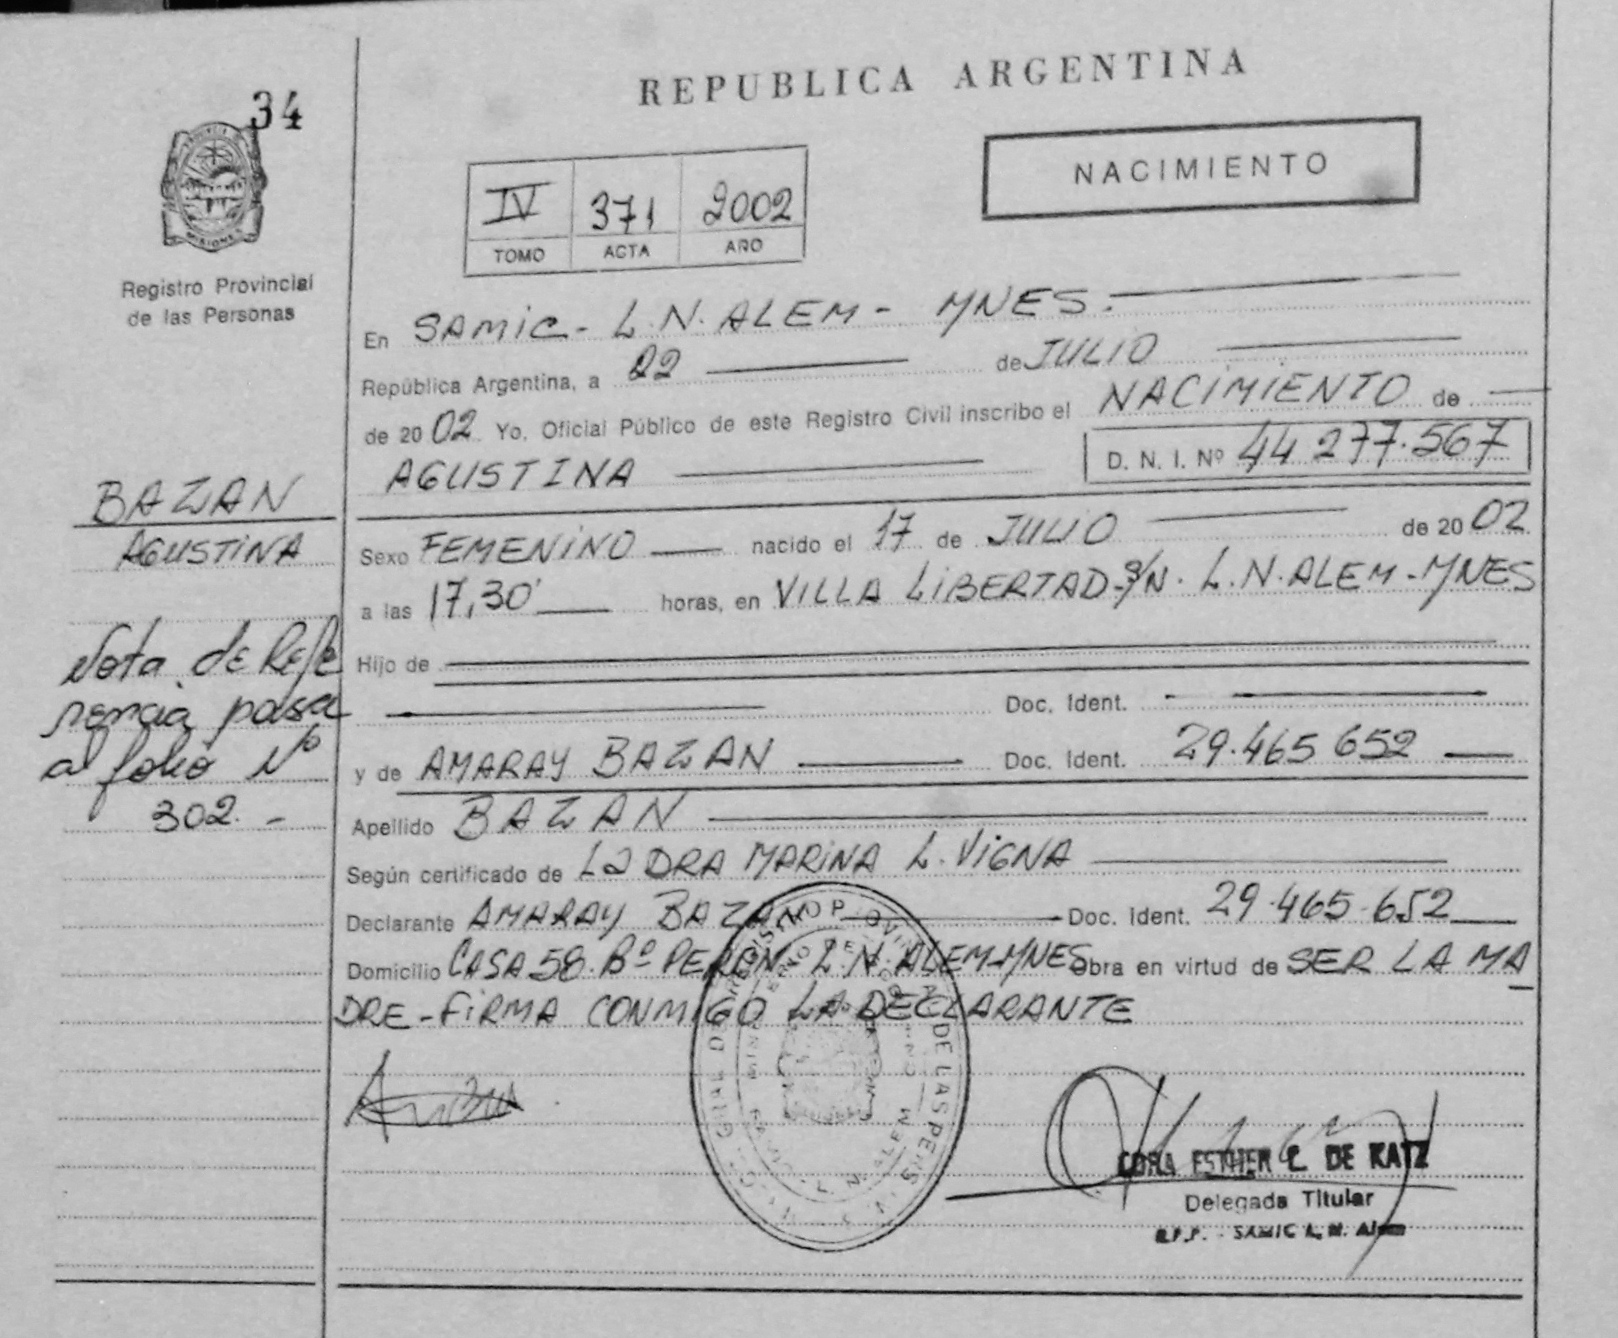 REPUBLICA ARGENTINA
34
NACIMIENTO
IV 371 2002
TOMO ACTA AÑO
MISIONES
Registro Provincial
de las Personas
En SAMIC - L.N. ALEM - MNES.
República Argentina, a 22 de JULIO
de 2002 Yo, Oficial Público de este Registro Civil inscribo el NACIMIENTO de
AGUSTINA D. N. I. Nº 44 277.567
BAZAN
AGUSTINA
Sexo FEMENINO nacido el 17 de JULIO de 2002
a las 17,30' horas, en VILLA LIBERTAD-S/N. L.N. ALEM - MNES
Nota de Refe
rencia pasa
al folio Nº
302. -
Hijo de
Doc. Ident.
y de AMARAY BAZAN Doc. Ident. 29.465 652
Apellido BAZAN
Según certificado de La DRA MARINA L. VIGNA
Declarante AMARAY BAZAN Doc. Ident. 29.465.652
Domicilio CASA 58. Bº PERON L.N. ALEM-MNES Obra en virtud de SER LA MA
DRE - FIRMA CONMIGO LA DECLARANTE
CORA ESTHER C. DE KATZ
Delegada Titular
R.P.P. - SAMIC L. N. Alem